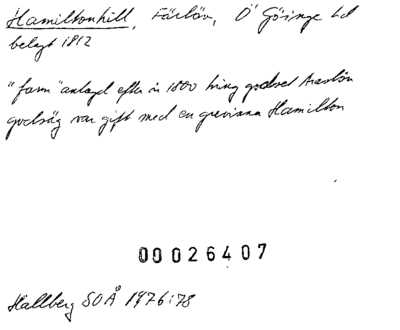 Hamiltonhill, Färlöv, Ö Göinge hd
belagt 1812
"farm" anlagd efter år 1800 kring godset Araslöv
godsäg var gift med en grevinna Hamilton
00026407
Hallberg SOÅ 1976:78